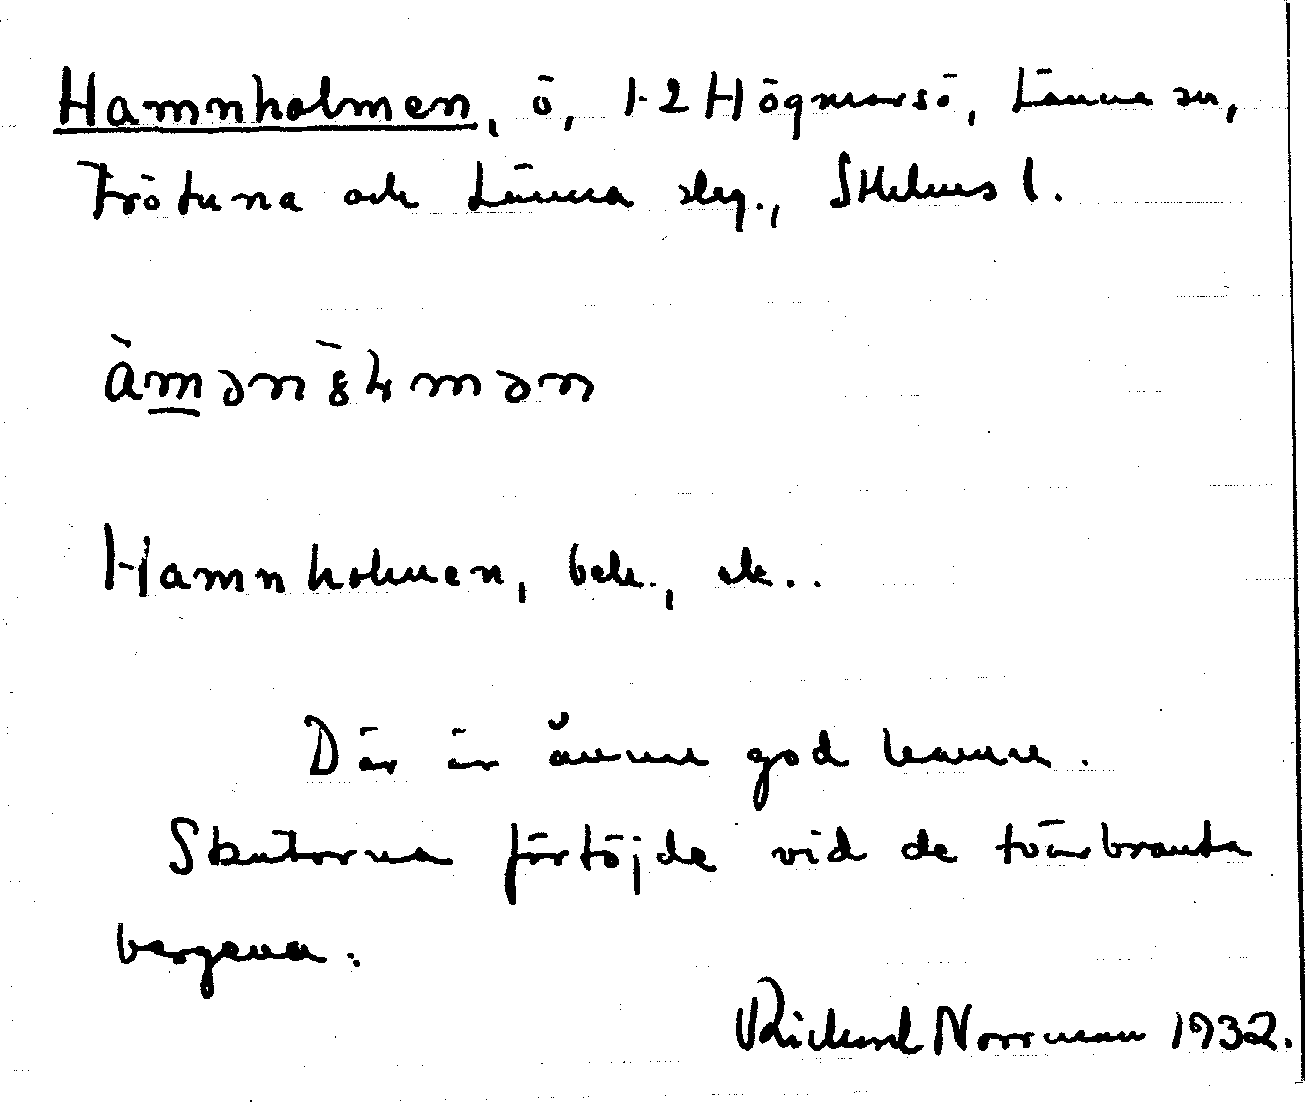 Hamnholmen, ö, 1-2 Högmarsö, Länna sn,
Frötuna och Länna slg., Sthlms l.
àmənò̤ɬmən
Hamnholmen, bek., ek..
Där är ännu god hamn.
Skutorna förtöjde vid de tvärbranta
bergena.
Rickard Norrman 1932.